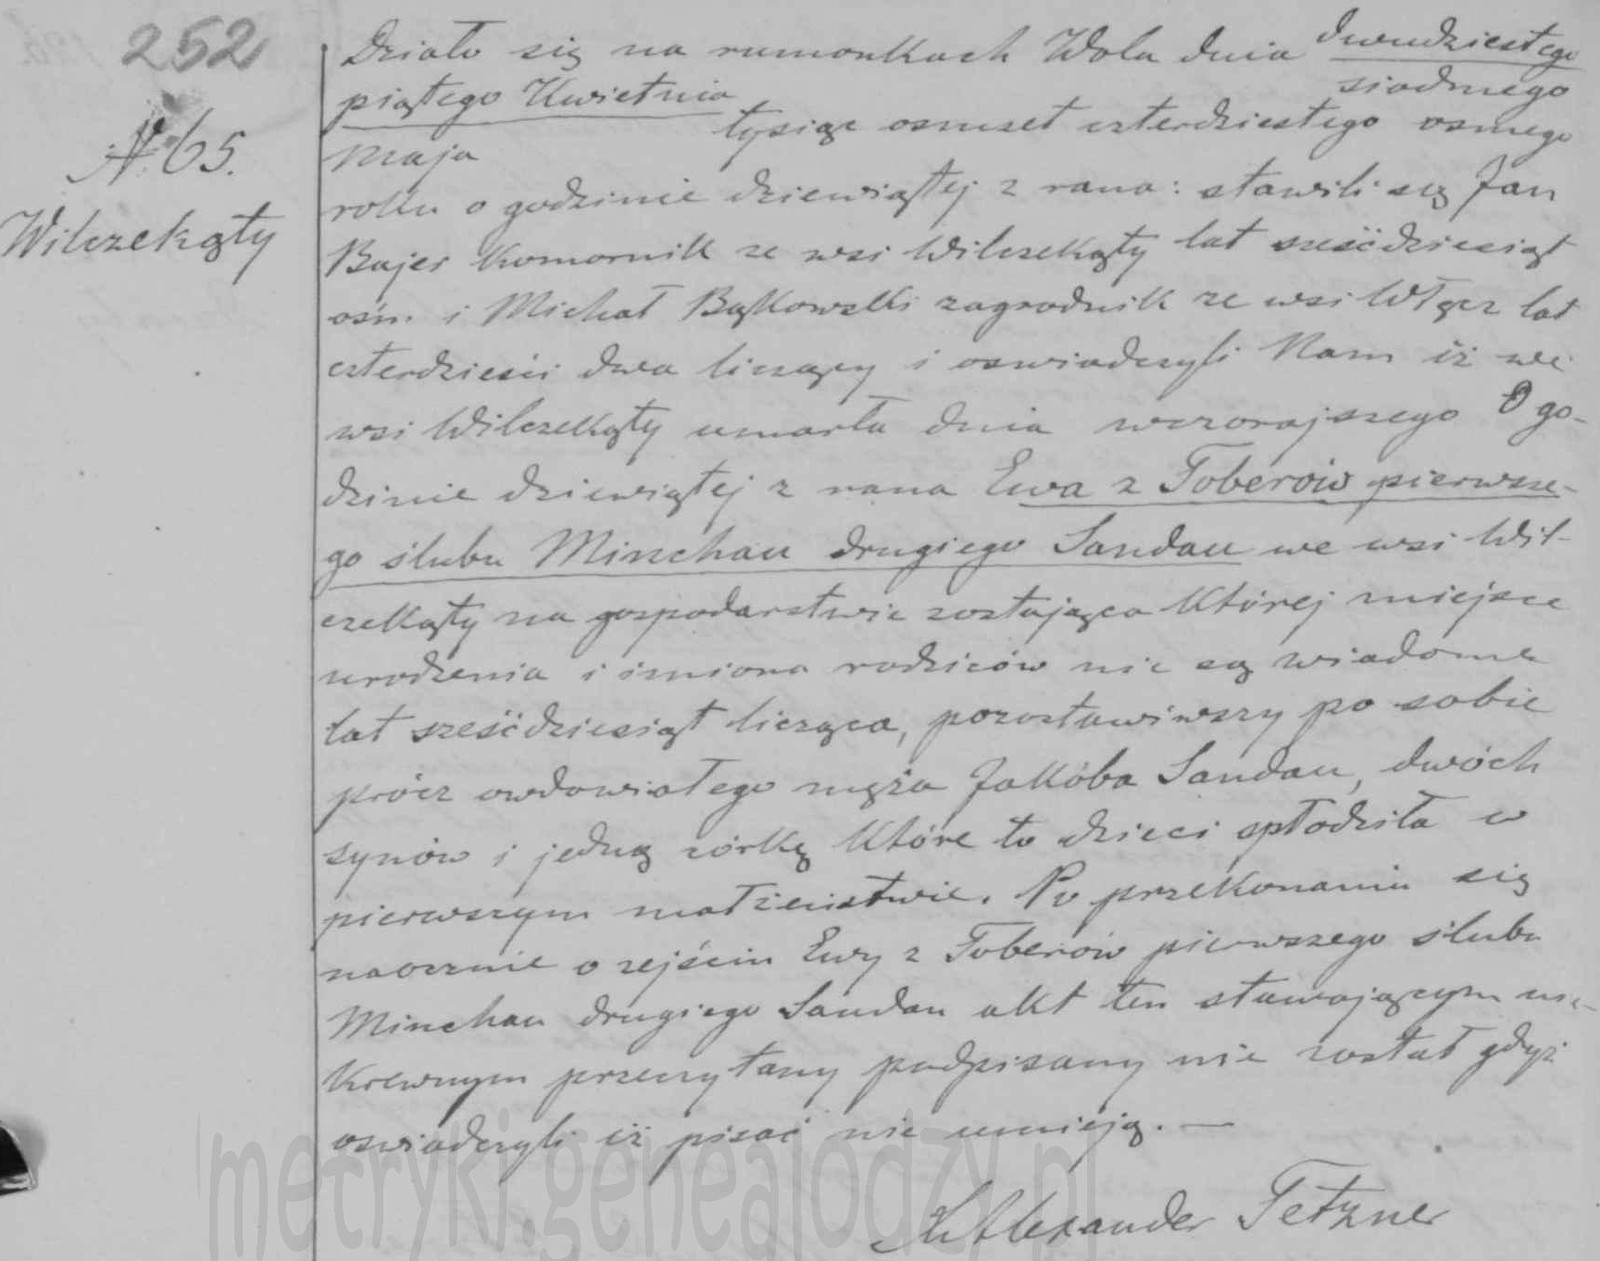 252
N. 65.
Wilczekąty
Działo się na rumonkach Wola dnia dwudziestego
siódmego
piątego Kwietnia
tysiąc osmset czterdziestego osmego
Maja
roku o godzinie dziewiątej z rana: stawili się Jan
Bajer Komornik ze wsi Wilczekąty lat sześćdziesiąt
ośm i Michał Bąkowski zagrodnik ze wsi Włęcz lat
czterdzieści dwa liczący i oswiadczyli Nam iż we
wsi Wilczekąty umarła dnia wczorajszego O go-
dzinie dziewiątej z rana Ewa z Toberów pierwsze-
go ślubu Minchau drugiego Sandau we wsi Wil-
czekąty na gospodarstwie zostająca której miejsce
urodzenia i imiona rodziców nie są wiadome
lat sześćdziesiąt licząca, pozostawiwszy po sobie
prócz owdowiałego męża Jakóba Sandau, dwóch
synów i jedną córkę które to dzieci spłodziła w
pierwszym małżeństwie. Po przekonaniu się
naocznie o zejściu Ewy z Toberów pierwszego ślubu
Minchau drugiego Sandau akt ten stawającym nie-
krewnym przeczytany podpisany nie został gdyż
oswiadczyli iż pisać nie umieją. —
Alexander Tetzner
metryki.genealodzy.pl